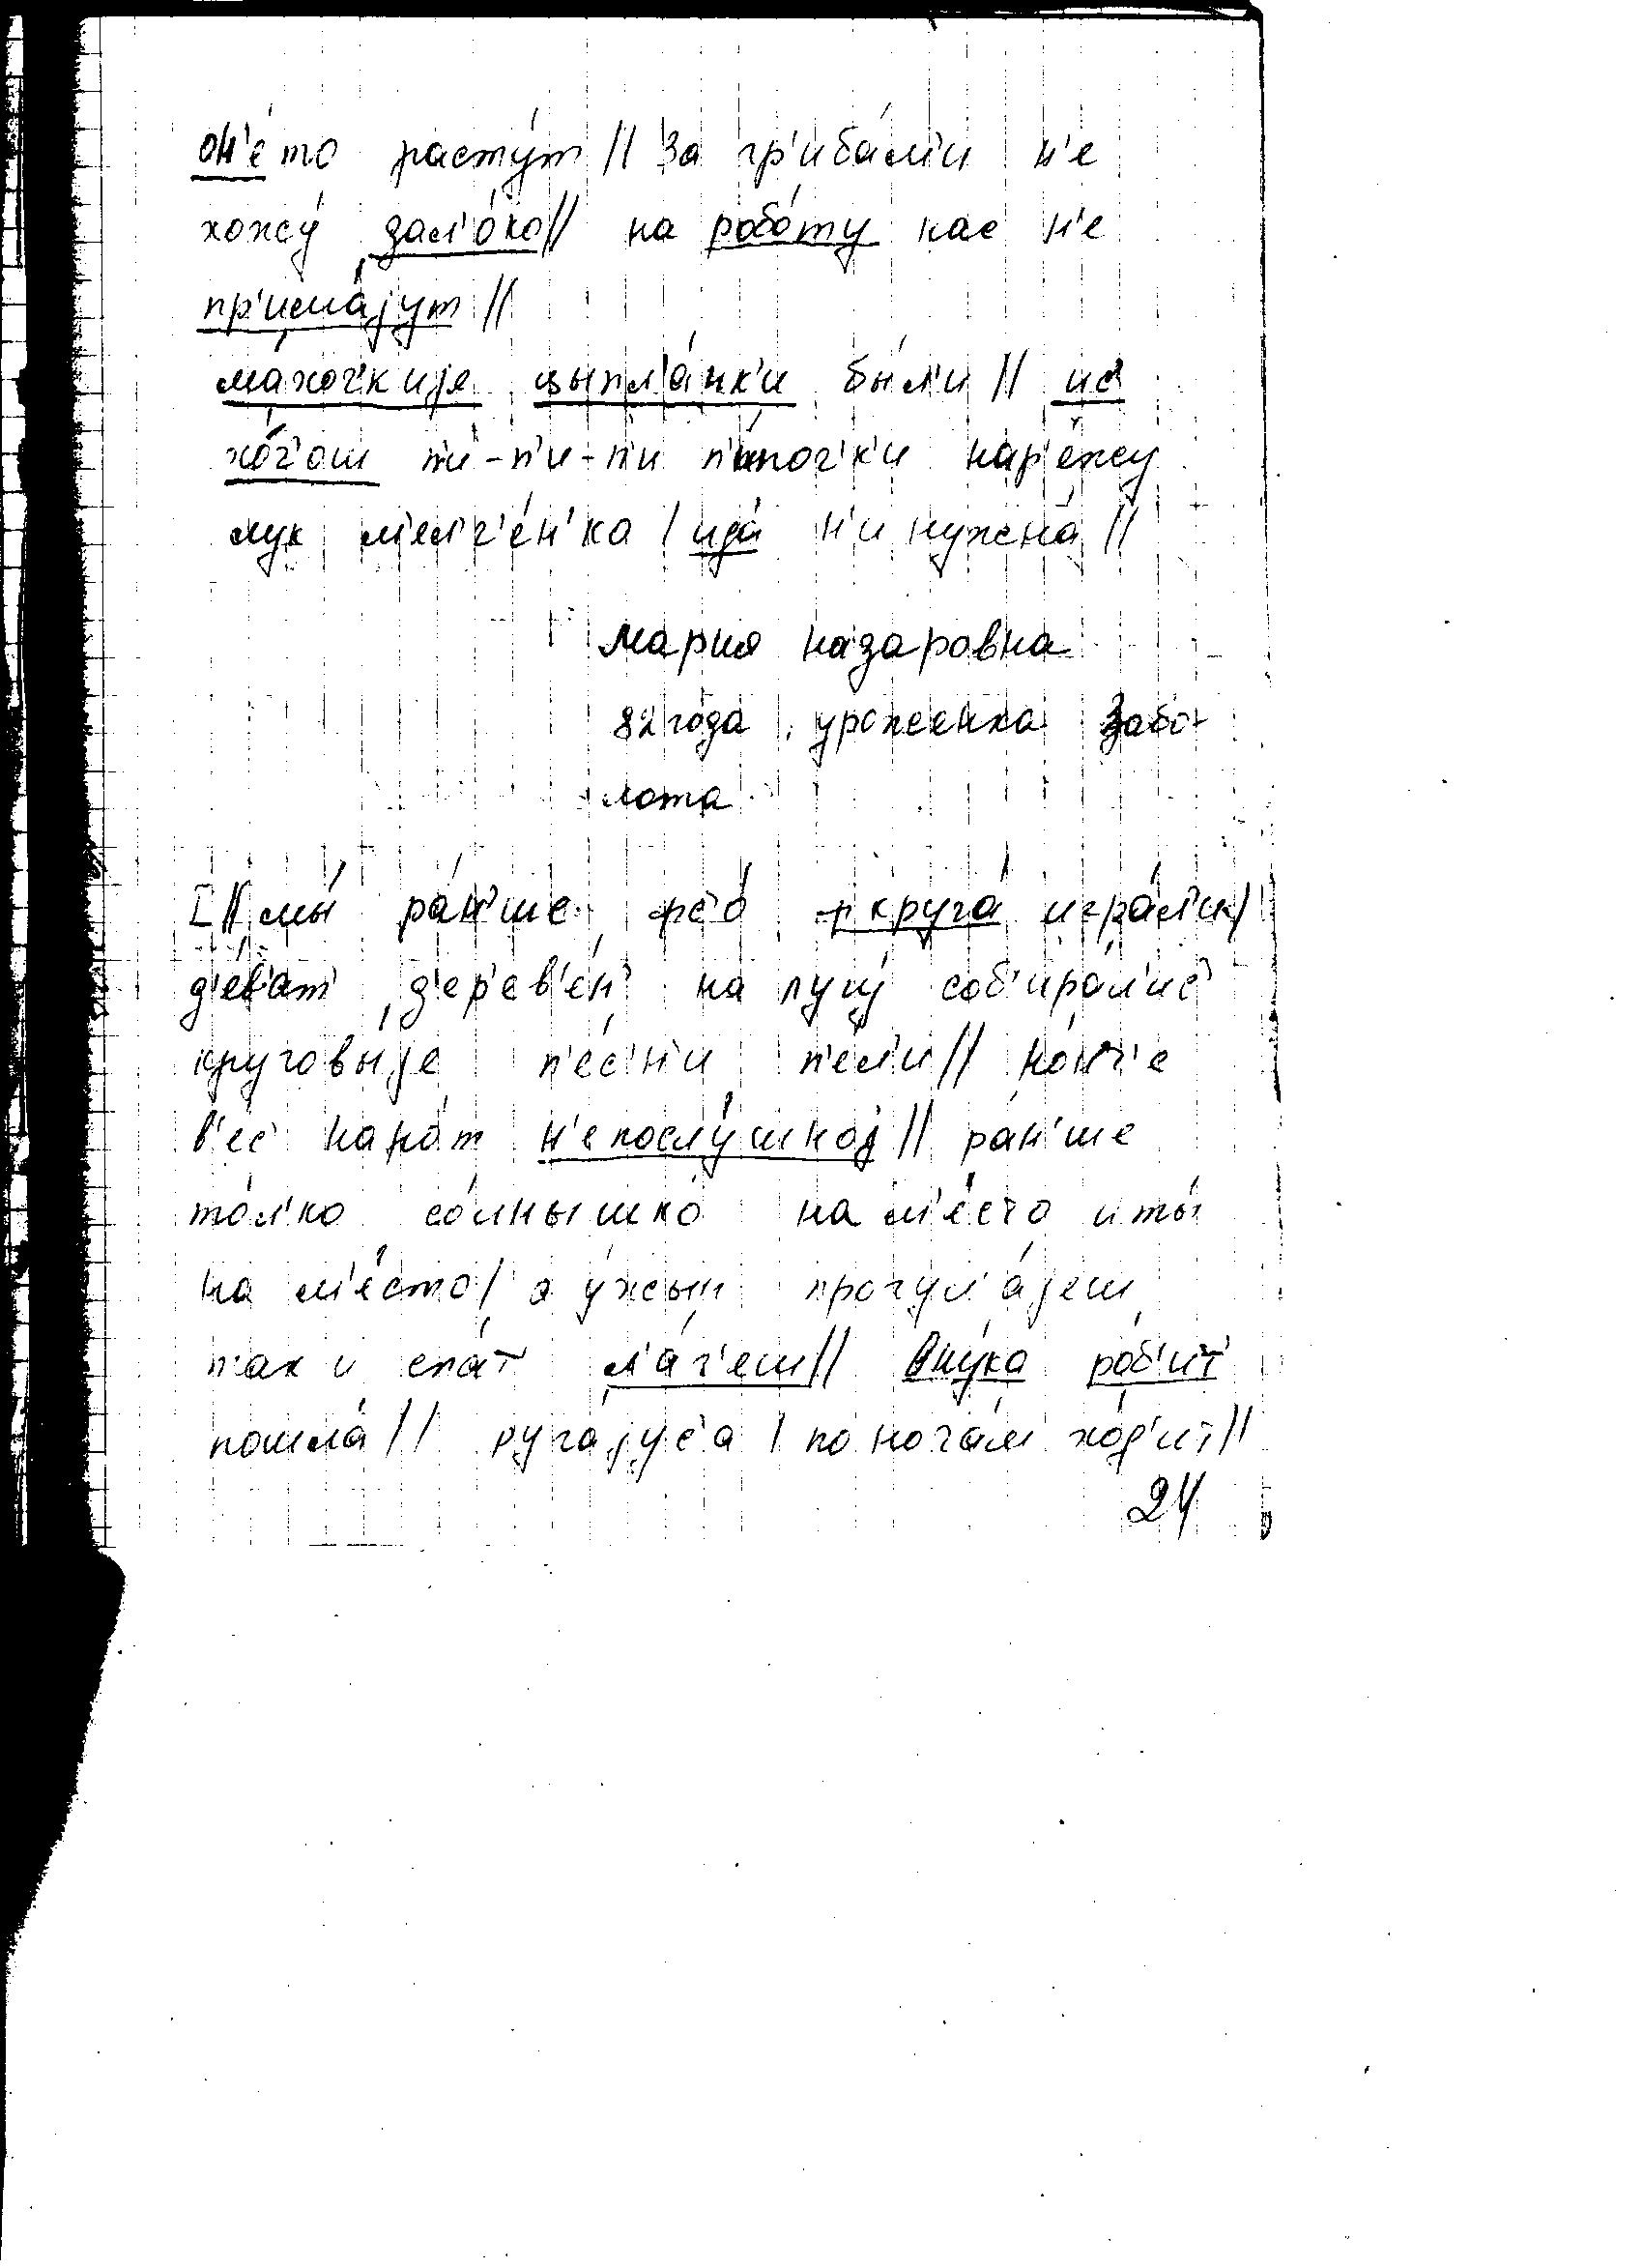 он'е́то расту́т // За гр'иба́м'и н'е
хожу́ зал'о́ко // на робо́ту нас н'е
пр'има́јут //
ма́хоч'кије цыпл'а́нк'и бы́л'и // ис
хо́ч'ош п'и-п'и-п'и п'и́поч'к'и нар'е́жу
лук м'ел'ч'е́н'ко / ида́ н'и нужена́ //
Мария Назаровна
82 года, уроженка Забо-
лота
[// мы́ ра́н'ше фс'о́ круга́ игра́л'и /
д'е́в'ат' д'ер'ев'е́н' на лугу́ соб'ира́л'ис'
круговы́је п'е́с'н'и п'е́л'и // но́нч'е
в'ес' наро́т н'епослу́шној // ра́н'ше
то́л'ко со́лнышко на м'е́сто и ты́
на м'е́сто / а у́жын прогул'а́јеш
так и спат' л'а́г'еш // Вну́ка ро́б'ит'
пошла́ // руга́јус'а / по ноча́м хо́д'ит //
24